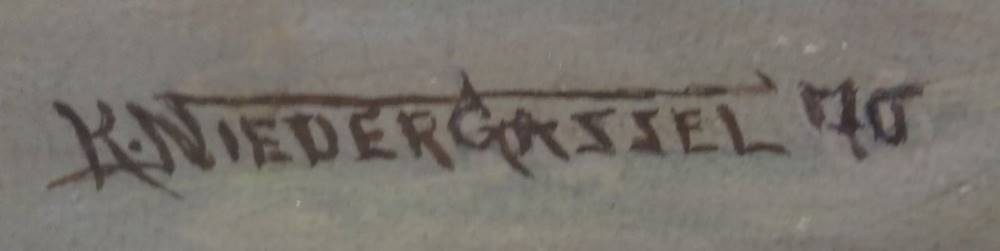 K. NIEDERGASSEL 70